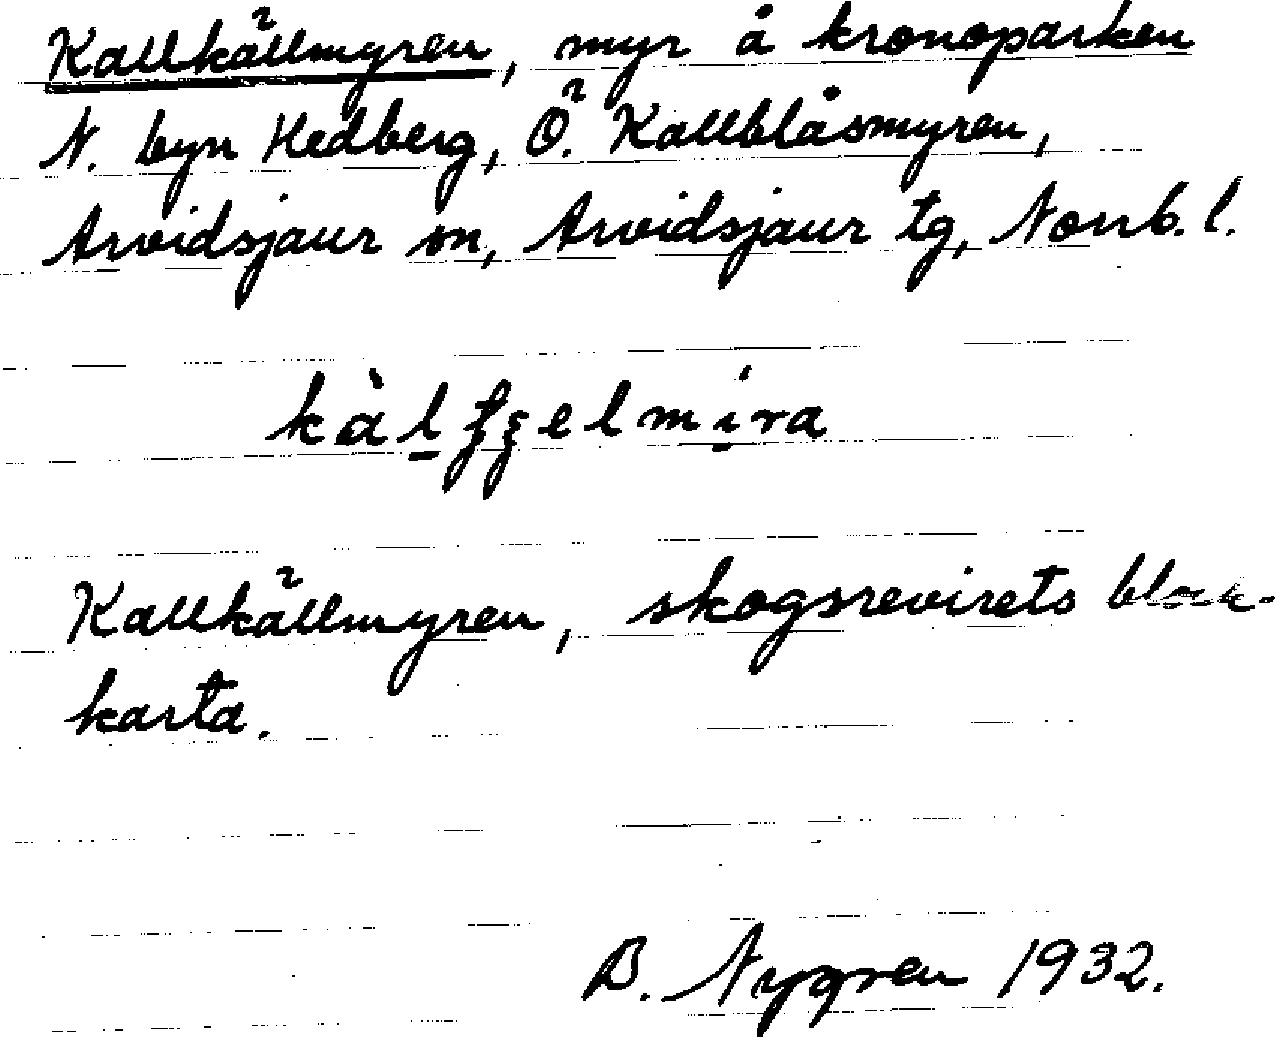 Kallkällmyren, myr å kronoparken
N. byn Hedberg, Ö. Kallblåsmyren,
Arvidsjaur sn, Arvidsjaur tg, Norrb. l.
kàl̲ʈʂelmi̲ra
Kallkällmyren, skogsrevirets block-
karta.
B. Nygren 1932.